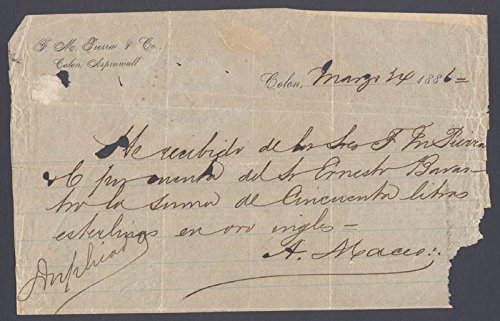 F. M. Pierra & Co.,
Colon, Aspinwall
Colon, Marzo 24 1886
He recibido de los Sres F. M. Pierra
& C por cuenta del Sr Ernesto Bavas-
tro la suma de Cincuenta libras
esterlinas en oro ingles -
A. Maceo.
Duplicado